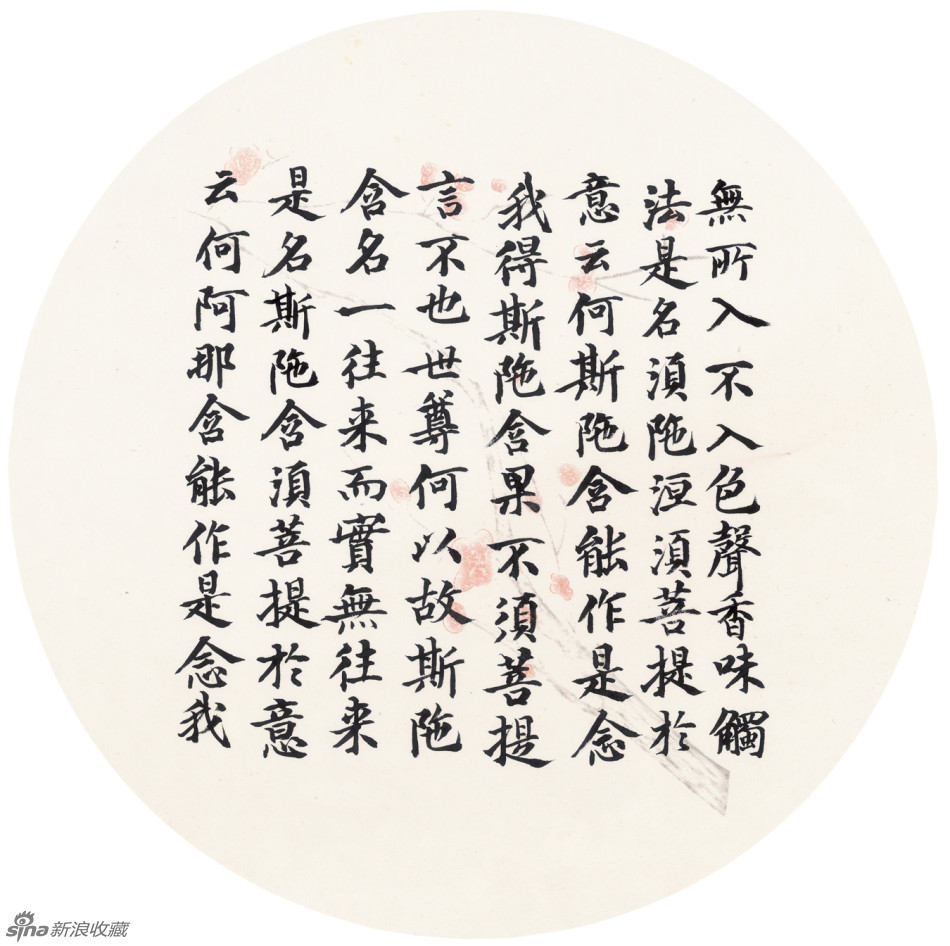 無所入不入色聲香味觸
法是名須陁洹須菩提於
意云何斯陁含能作是念
我得斯陁含果不須菩提
言不也世尊何以故斯陁
含名一往来而實無往来
是名斯陁含須菩提於意
云何阿那含能作是念我
sina新浪收藏